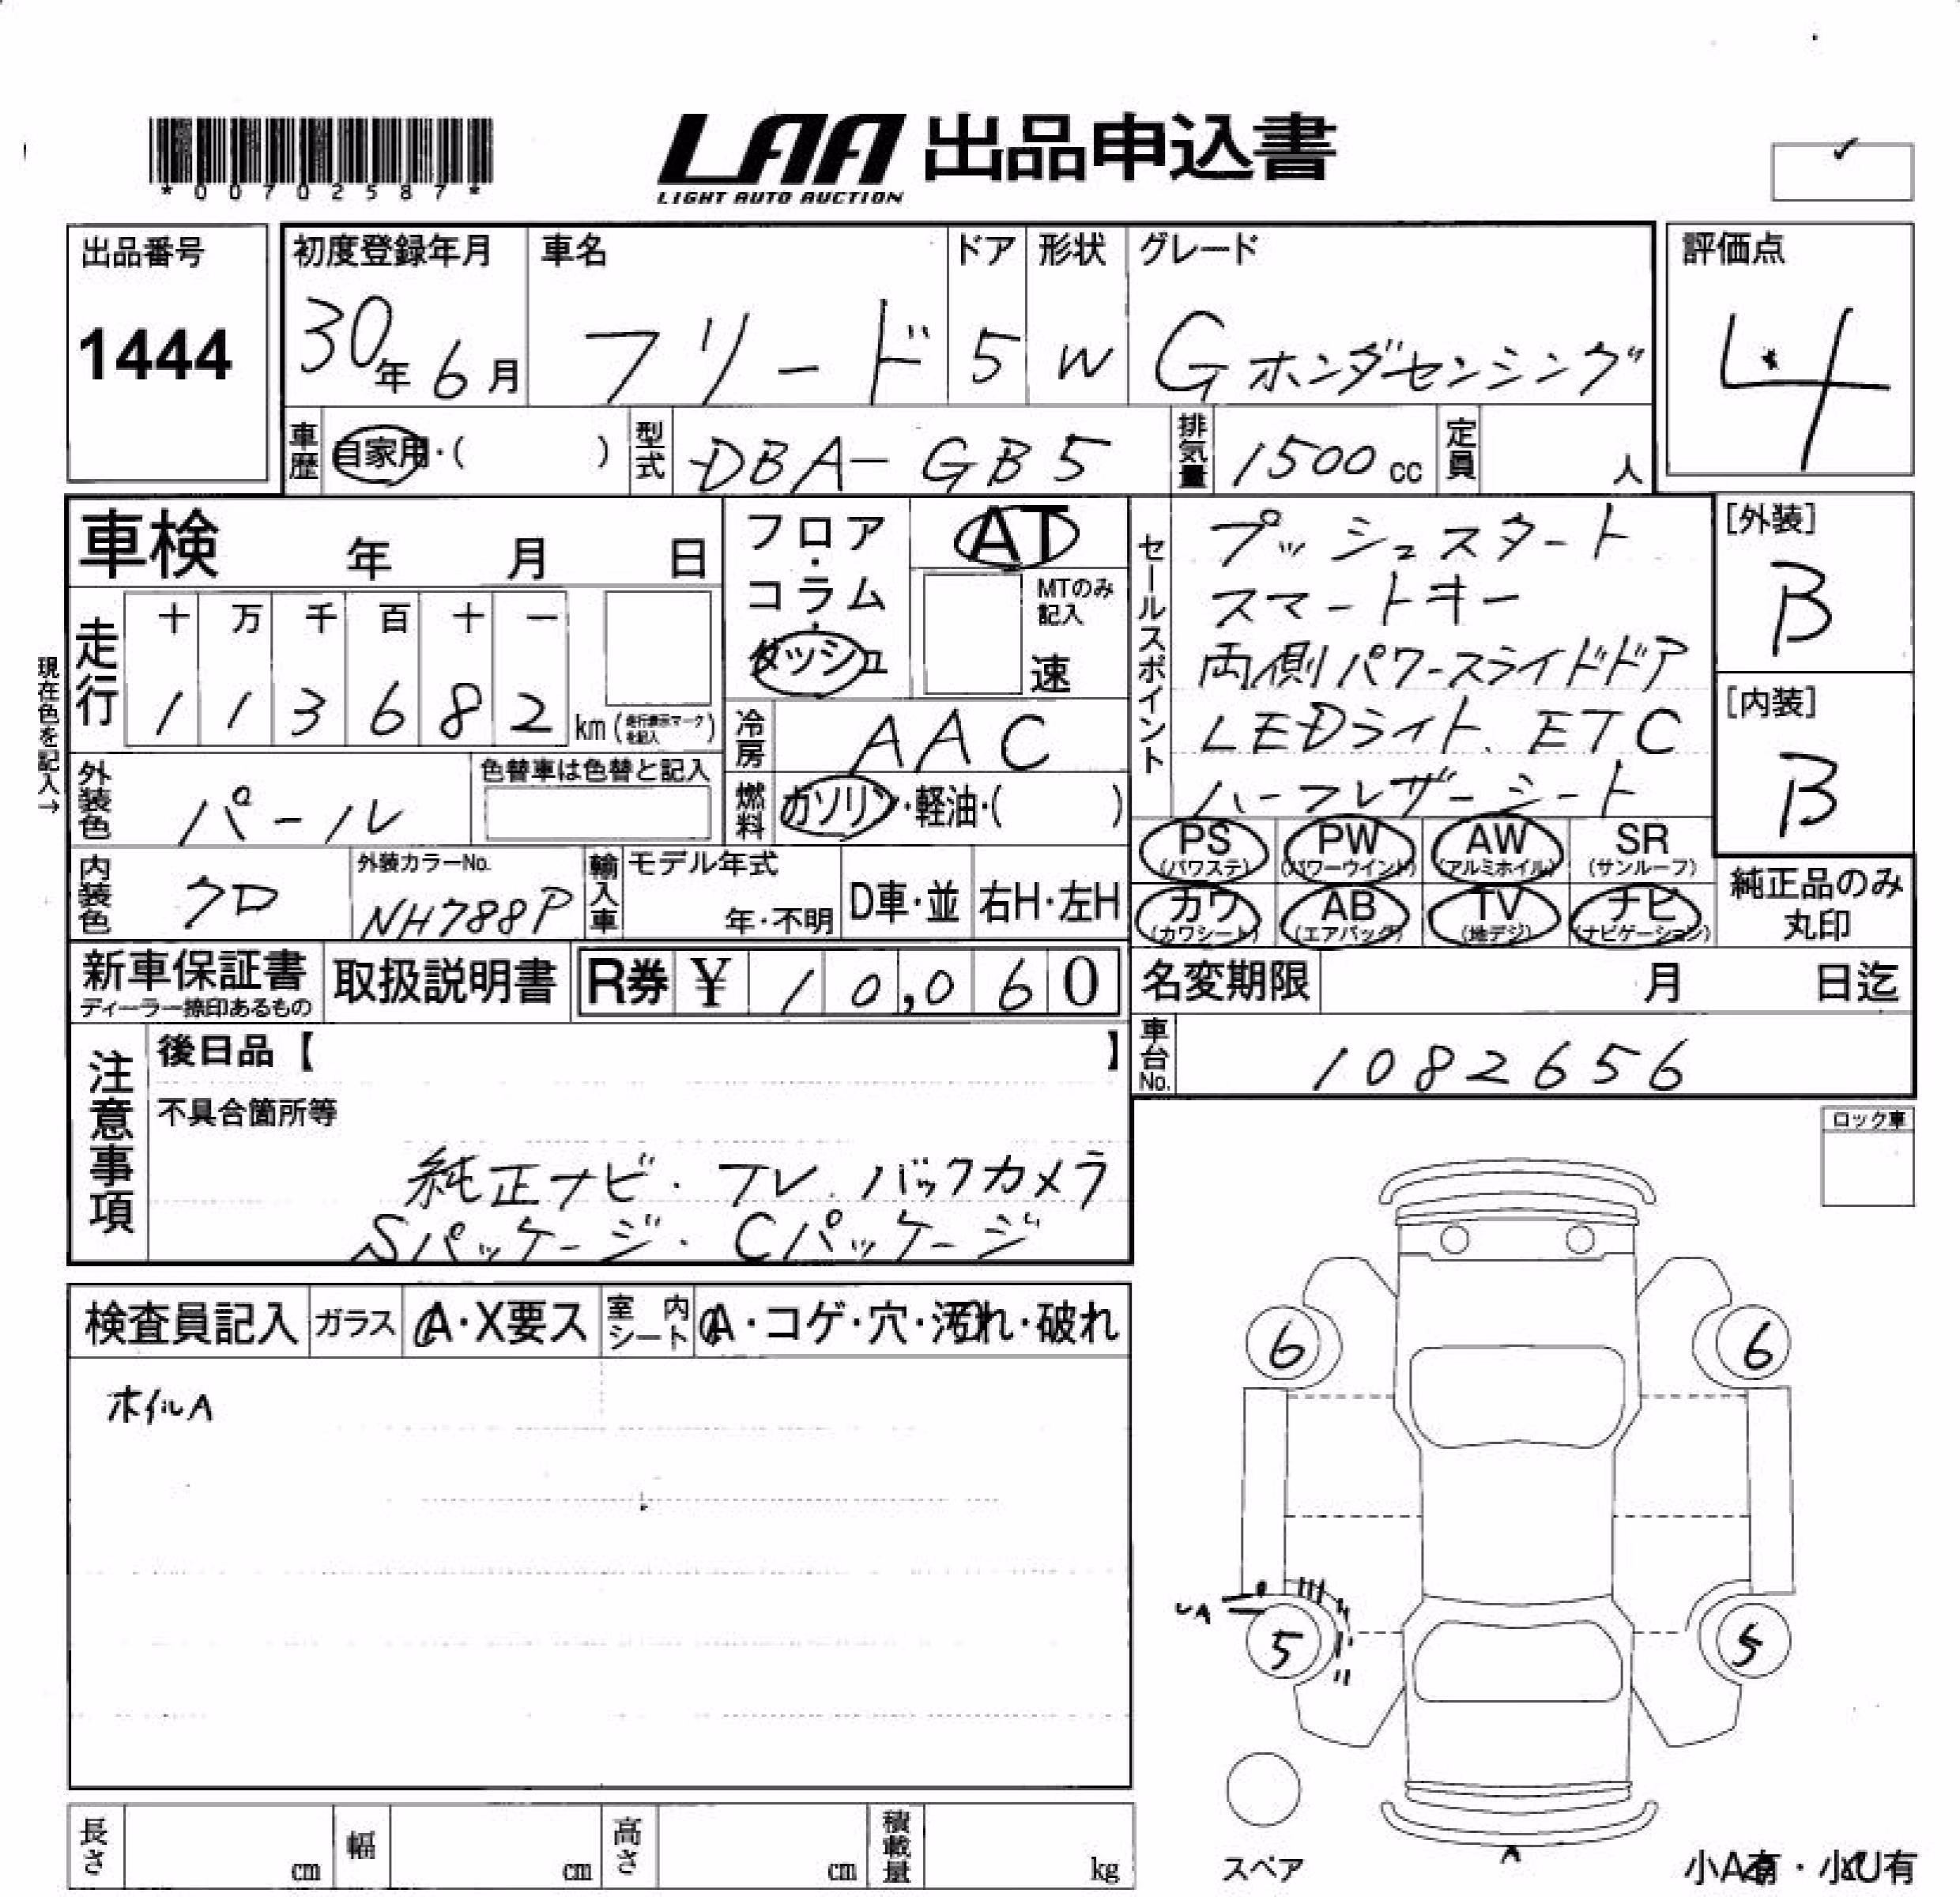 *00702587*
LAA 出品申込書
LIGHT AUTO AUCTION
出品番号
1444
初度登録年月
30年6月
車名
フリード
ドア
5
形状
W
グレード
Gホンダセンシング
評価点
4
車歴 自家用・( )
型式 DBA-GB5
排気量 1500cc
定員 人
車検 年 月 日
走行
十 万 千 百 十 一
1 1 3 6 8 2 km(走行表示マークを記入)
現在色を記入→
外装色 パール
色替車は色替と記入
内装色 クロ
外装カラーNo.
NH788P
フロア・コラム・ダッシュ
AT
MTのみ記入
速
冷房 AAC
燃料 ガソリン・軽油・( )
輸入車
モデル年式
年・不明
D車・並
右H・左H
セールスポイント
プッシュスタート
スマートキー
両側パワースライドドア
LEDライト、ETC
ハーフレザーシート
[外装]
B
[内装]
B
PS (パワステ)
PW (パワーウインド)
AW (アルミホイル)
SR (サンルーフ)
カワ (カワシート)
AB (エアバッグ)
TV (地デジ)
ナビ (ナビゲーション)
純正品のみ
丸印
新車保証書
ディーラー捺印あるもの
取扱説明書
R券 ¥ 10,060
名変期限 月 日迄
車台No. 1082656
注意事項
後日品【 】
不具合箇所等
純正ナビ・TV.バックカメラ
Sパッケージ・Cパッケージ
ロック車
検査員記入
ガラス A・X要ス
室内シート A・コゲ・穴・汚れ・破れ
ホイルA
6
6
5
5
A
スペア
小A有・小U有
長さ cm
幅 cm
高さ cm
積載量 kg